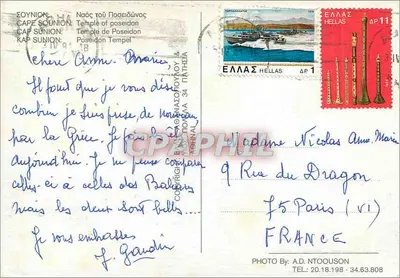 ΣΟΥΝΙΟΝ. Ναός τοῦ Ποσειδῶνος
CAPE SOUNION: Temple of poseidon
CAP SUNION: Temple de Poseidon
KAP SUNION: Poseidon Tempel
Chère Anne-Marie,
Il faut que je vous dise
combien je suis prise, de nouveau,
par la Grèce. Je
aujourd'hui. Je ne peux comparer
celles-ci à celles des
mais les deux sont belles...
Je vous embrasse
J. Gaudin
COPYRIGHT
ΑΘΗΝΑΙ
ΕΛΛΑΣ HELLAS ΔΡ 1
ΕΛΛΑΣ ΔΡ 11
HELLAS
CPAPHIL
Madame Nicolas Anne-Marie
9 Rue du Dragon
75 Paris (VI)
FRANCE
PHOTO By: A.D. NTOOUSON
TEL.: 20.18.198 - 34.63.808